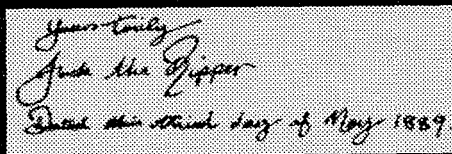 yours truly
Jack the Ripper
Dated this third day of May 1889.